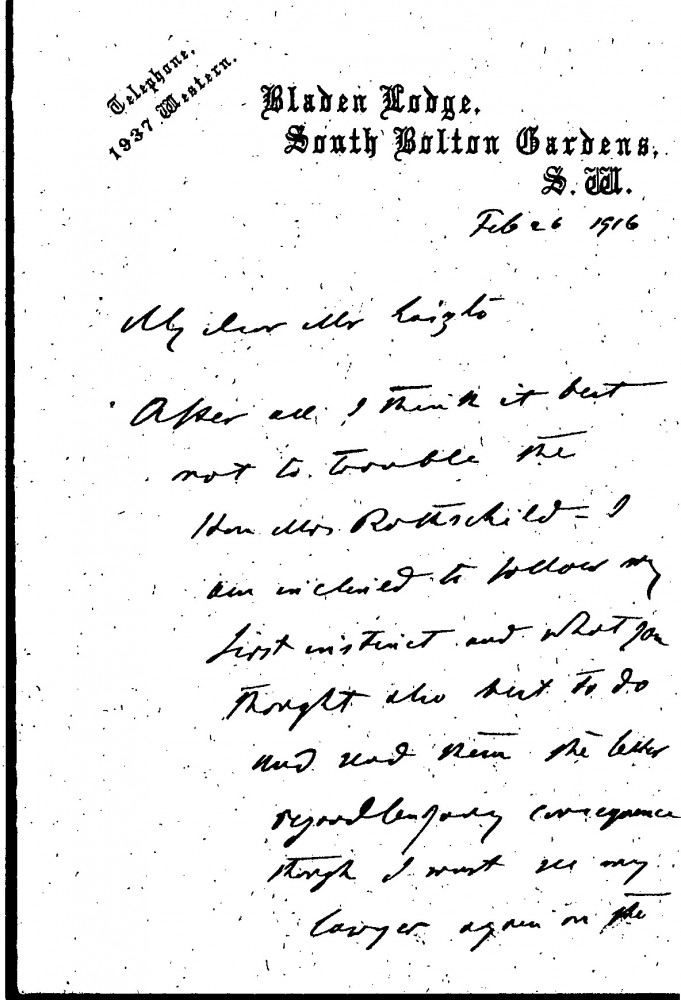 Telephone,
1937 Western.
Bladen Lodge,
South Bolton Gardens,
S. W.
Feb 26 1916
My dear Mr
After all I think it best
not to trouble the
Hon Mrs Rothschild = I
am inclined to follow my
first instinct and what you
thought also best to do
and send them the letter
regardless of any consequence
though I must see my
lawyer again on the